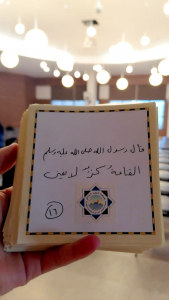 قال رسول الله صلى الله عليه وسلم
القناعة كنز لا يفنى
١٦